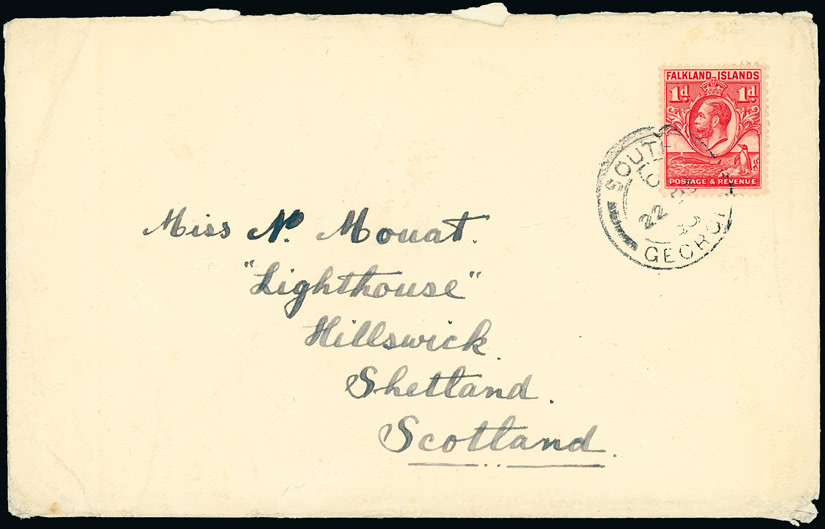 FALKLAND ISLANDS
1d 1d
POSTAGE & REVENUE
SOUTH
22
GEORGIA
Miss N. Mouat.
"Lighthouse"
Hillswick
Shetland.
Scotland.